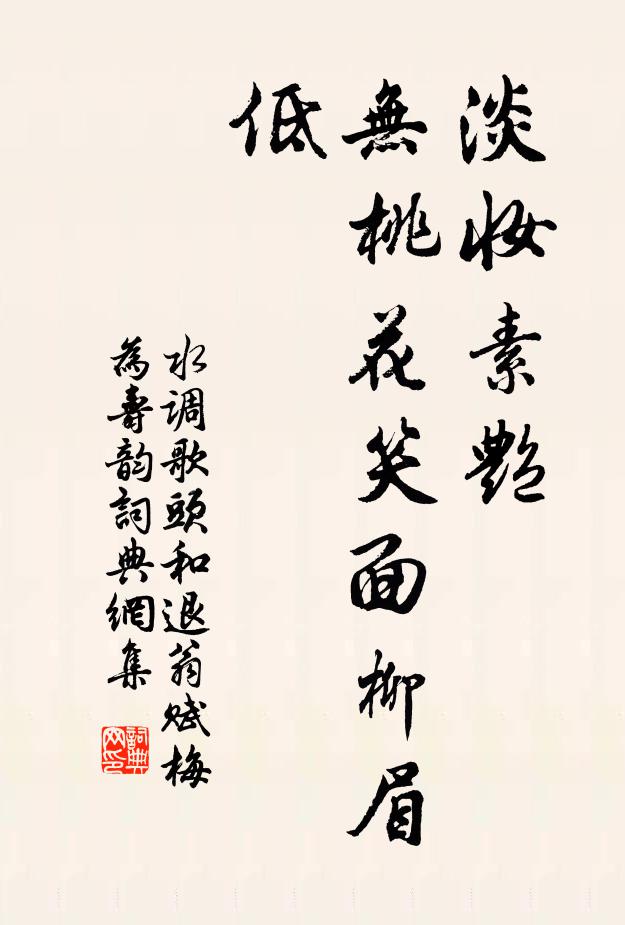 淡妝素艷
無桃花笑面柳眉
低
水調歌頭和退翁賦梅
為壽韵詞典網集
詞典
网印